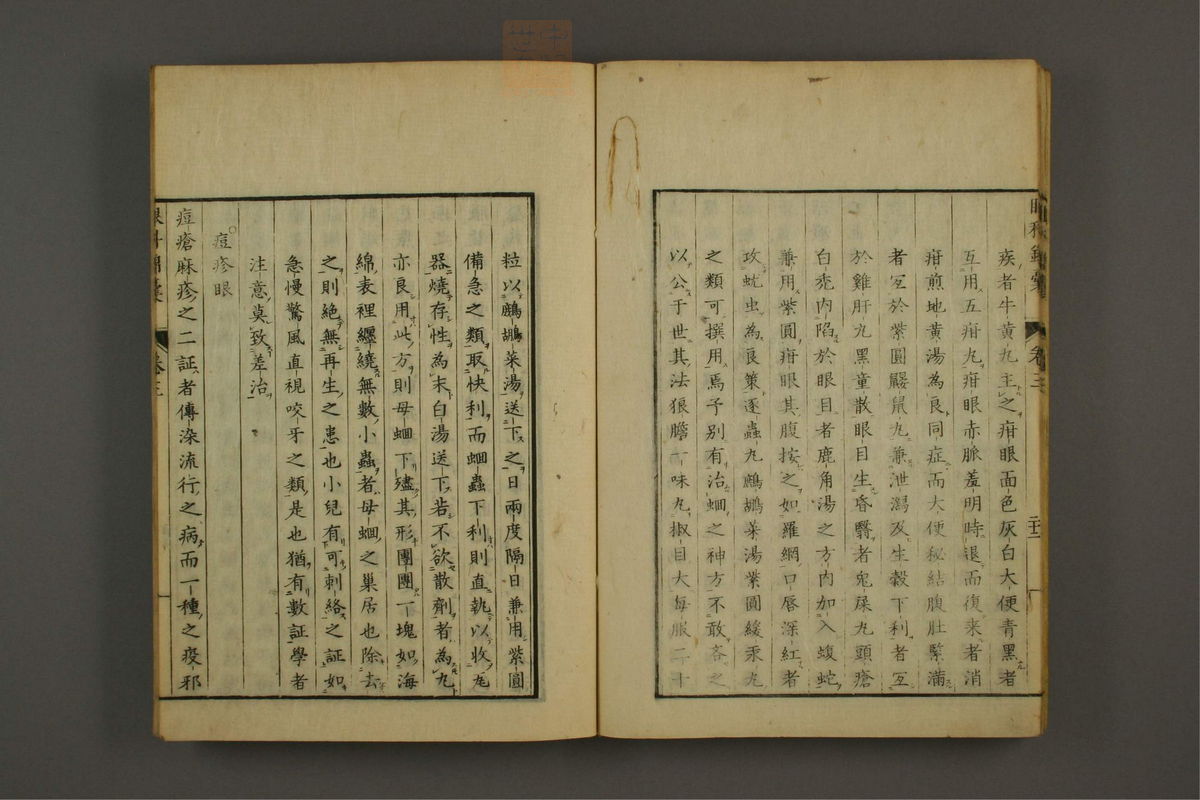 眼科錦囊 卷三 二十三
疾者牛黃丸主之疳眼面色灰白大便青黑者
互用五疳丸疳眼赤脈羞明時退而復来者消
疳煎地黃湯為良同症而大便秘結腹肚緊滿
者宜於紫圓鼹鼠丸兼泄瀉及生穀下利者宜
於雞肝丸黑童散眼目生昏翳者兔屎丸頭瘡
白禿內陷於眼目者鹿角湯之方內加入蝮蛇
兼用紫圓疳眼其腹按之如羅網口唇深紅者
攻蚘虫為良策逐蟲丸鷓鴣菜湯紫圓緩汞丸
之類可撰用焉予別有治蛔之神方不敢吝之
以公于世其法狼膽一味丸椒目大每服二十
粒以鷓鴣菜湯送下之日兩度隔日兼用紫圓
備急之類取快利而蛔蟲下利則直執以收瓦
器燒存性為末白湯送下若不欲散劑者為丸
亦良用此方則母蛔下殪其形團團一塊如海
綿表裡纒繞無數小蟲者母蛔之巢居也除去
之則絕無再生之患也小兒有可刺絡之証如
急慢驚風直視咬牙之類是也猶有數証學者
注意莫致差治
痘疹眼
痘瘡麻疹之二証者傳染流行之病而一種之疫邪
眼科錦囊 卷三